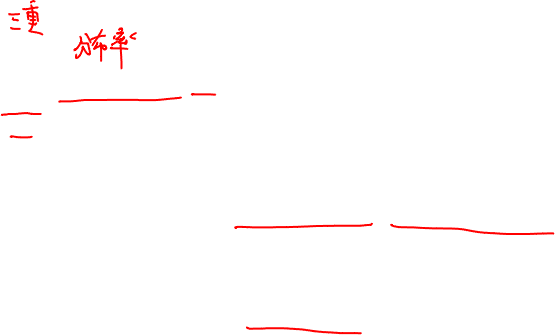 三重
分布率